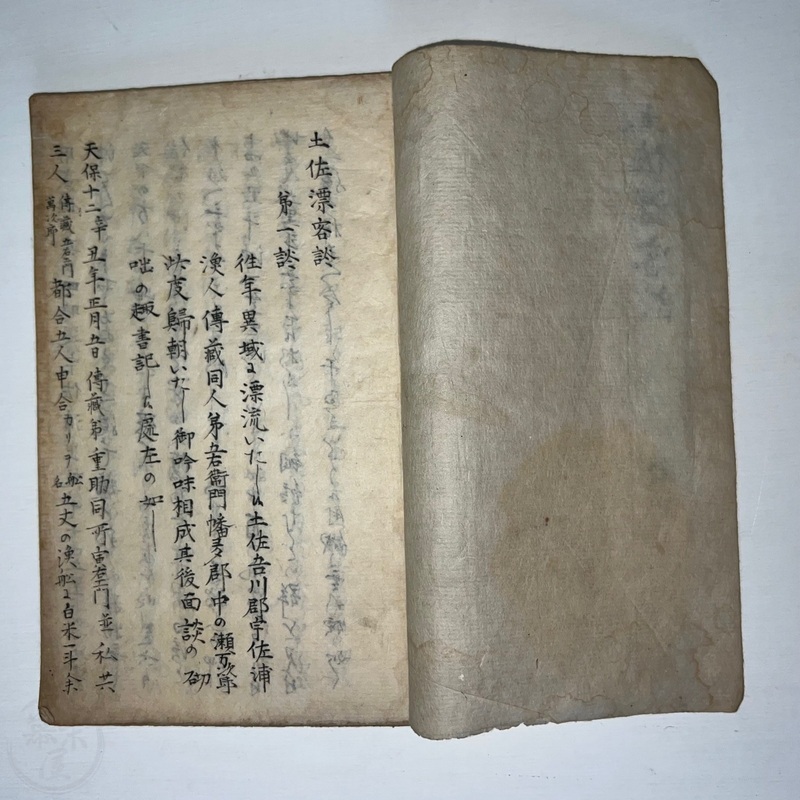 土佐漂客談
第一談
徃年異域ニ漂流いたし候土佐吾川郡宇佐浦
漁人傳藏同人弟五右衛門幡多郡中の瀬万次郎
此度歸朝いたし御吟味相成其後面談の砌
咄の趣書記し候處左の如し
天保十二年辛丑年正月五日傳藏弟重助同所寅右衛門並私共
三人傳藏五右衛門萬次郎都合五人申合カリヲ舩名五丈の漁舩ニ白米一斗余